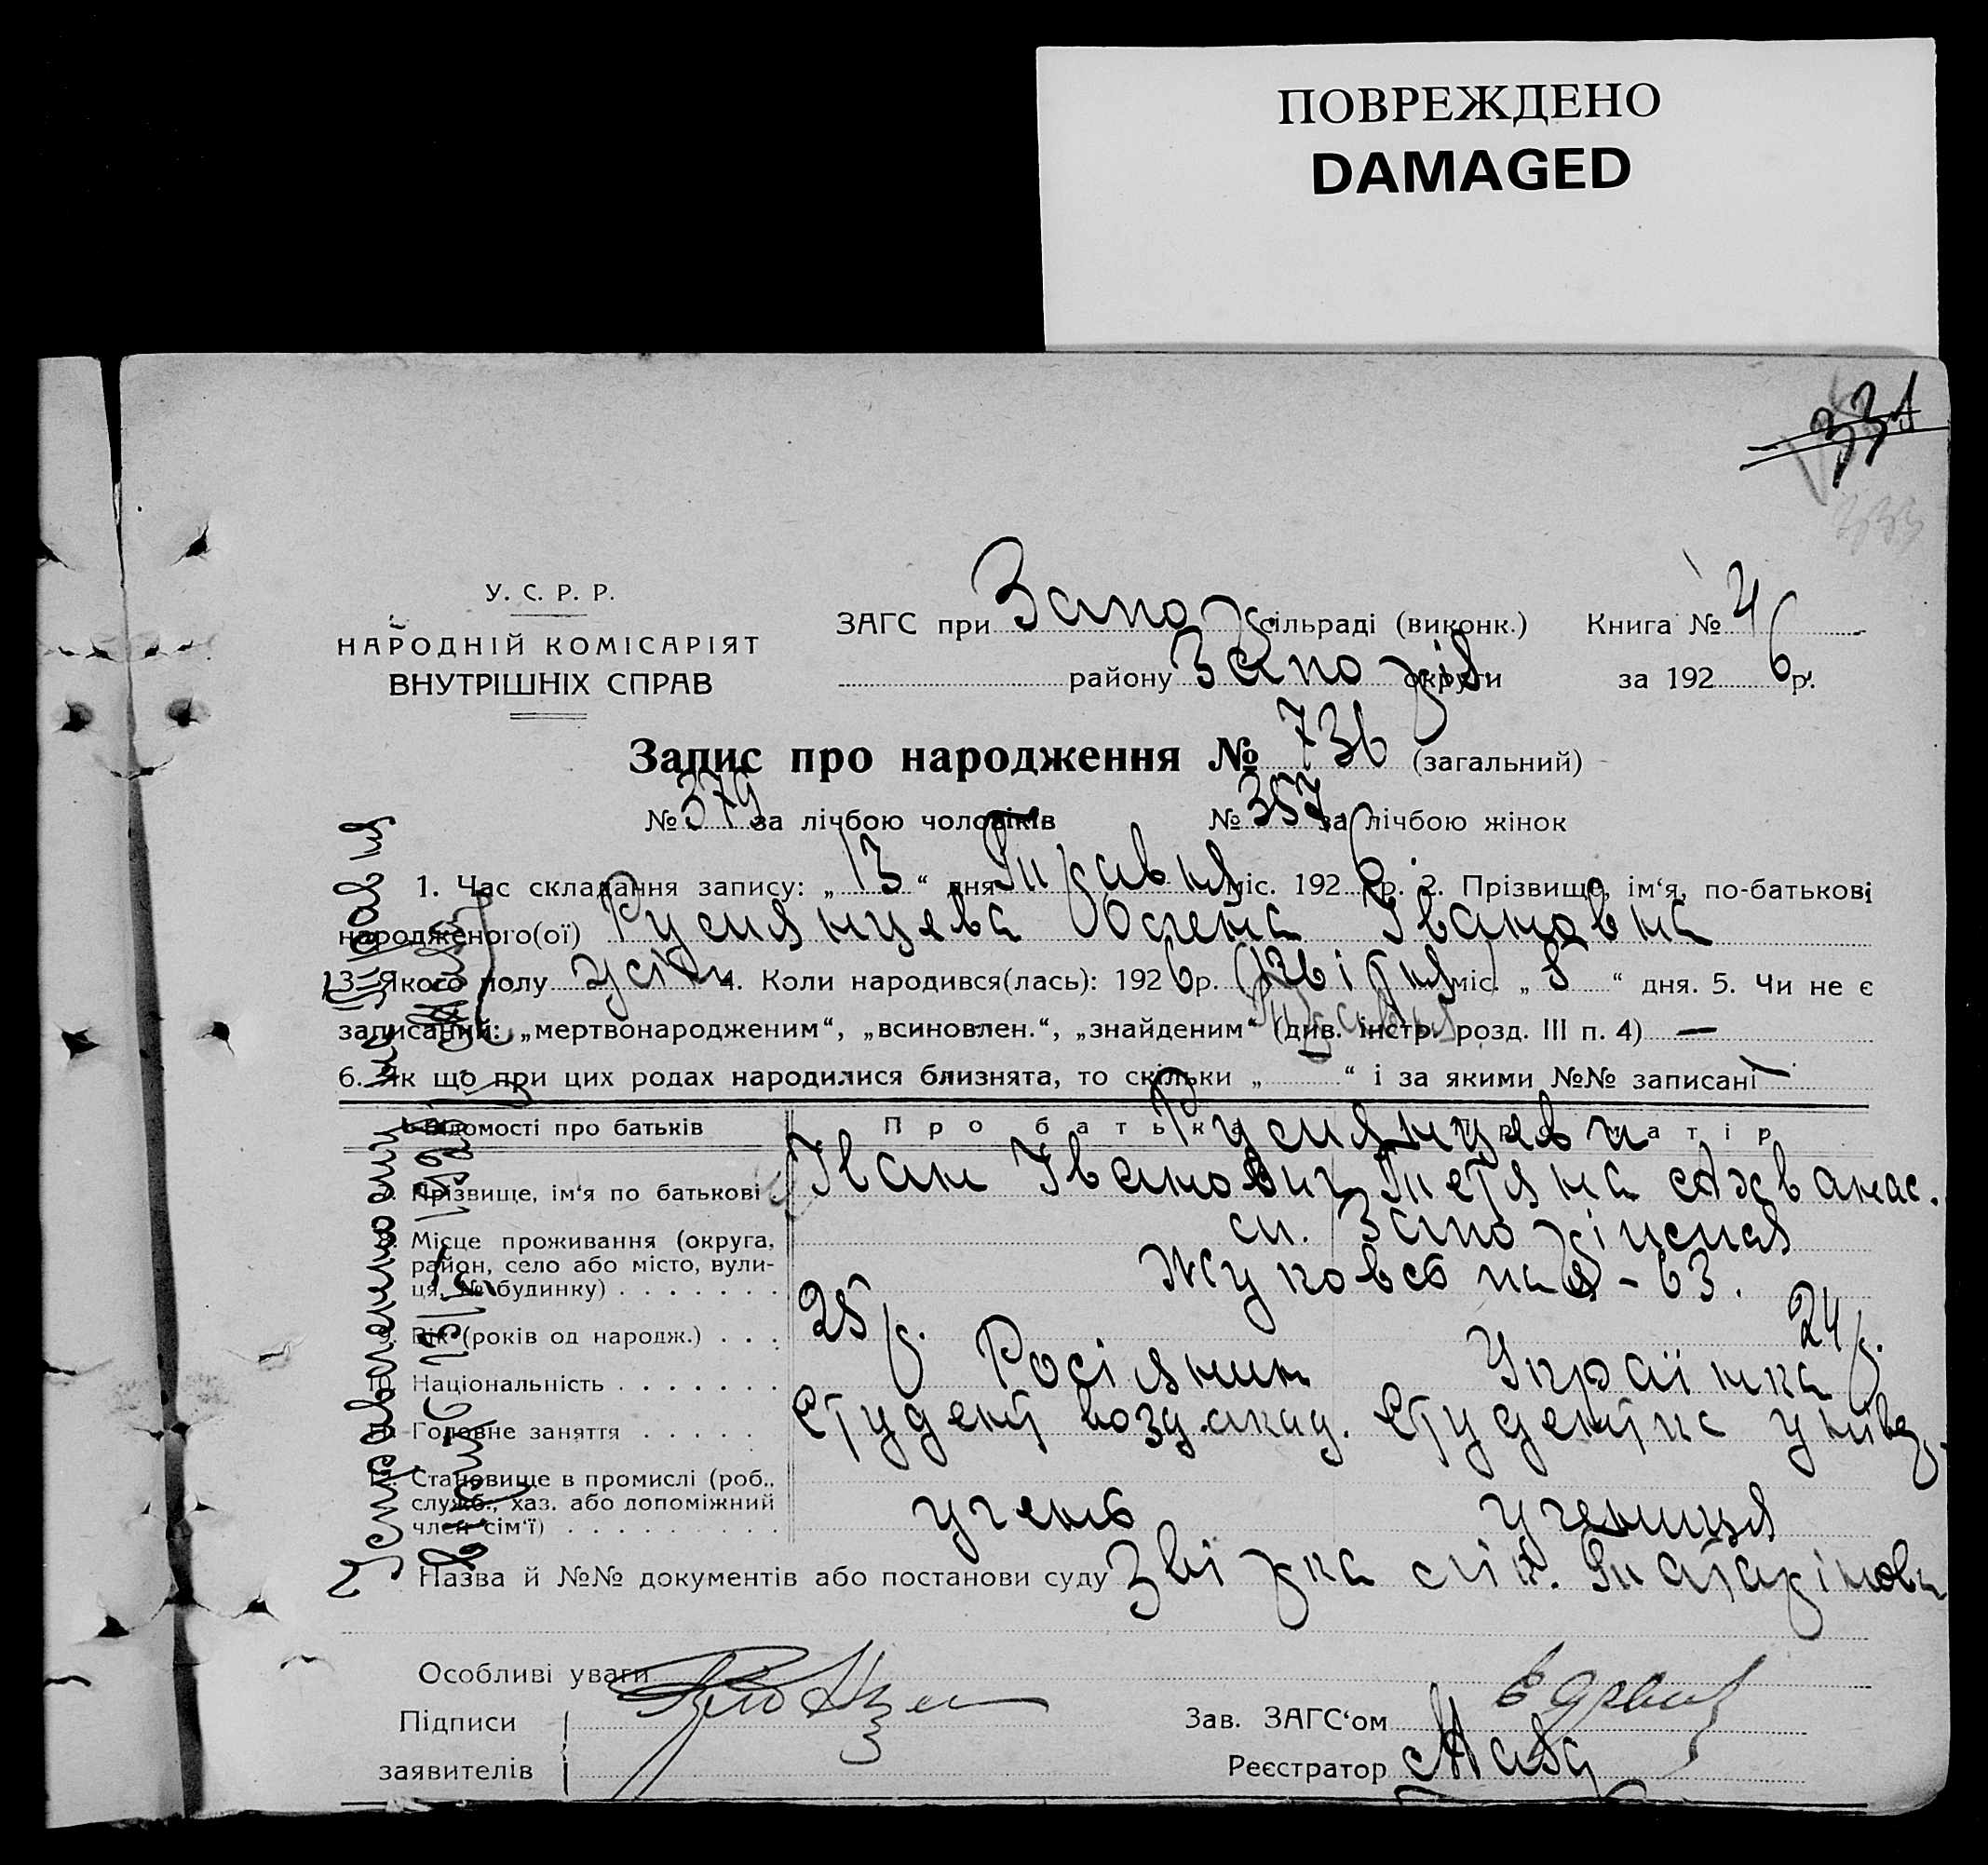 ПОВРЕЖДЕНО
DAMAGED
331
333
У. С. Р. Р.
НАРОДНІЙ КОМІСАРІЯТ
ВНУТРІШНІХ СПРАВ
ЗАГС при Запоріж сільраді (виконк.) Книга № 4
району Запоріж округи за 1926 р.
Запис про народження № 736 (загальний)
№ 379 за лічбою чоловіків № 357 за лічбою жінок
1. Час складання запису: „13“ дня Травня міс. 1926 р. 2. Прізвище, ім‘я, по-батькові
народженого(ої) Румянцева Олена Івановна
3. Якого полу жін. 4. Коли народився(лась): 1926 р. Квітня міс. „8“ дня. 5. Чи не є
записаний: „мертвонародженим“, „всиновлен.“, „знайденим“ (див. інстр. розд. III п. 4) —
6. Як що при цих родах народилися близнята, то скільки „ “ і за якими №№ записані —
Відомості про батьків Про батька Про матір
Румянцеви
Прізвище, ім‘я по батькові Іван Іванович Тетяна Афанас.
Місце проживання (округа, м. Запоріжжя
район, село або місто, вули-
ця, № будинку) Жуковська - 63.
9. Вік (років од народж.) 25 р. 24 р.
Національність Росіянин Українка
Головне заняття Студент акад. Студентка
Становище в промислі (роб.,
служб., хаз. або допоміжний
член сім‘ї) учень учениця
Назва й №№ документів або постанови суду
Особливі уваги
Підписи
заявителів
Зав. ЗАГС‘ом
Реєстратор